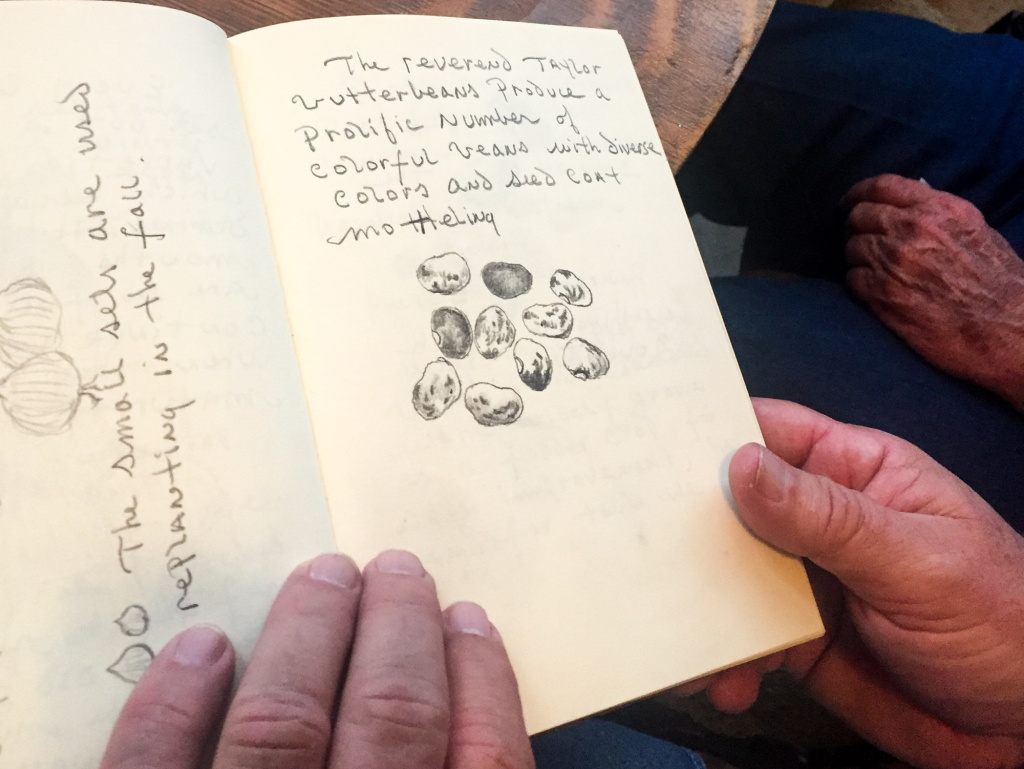 The small sets are used
replanting in the fall.
The reverend Taylor
butterbeans Produce a
Prolific Number of
colorful beans with diverse
colors and seed coat
motteling